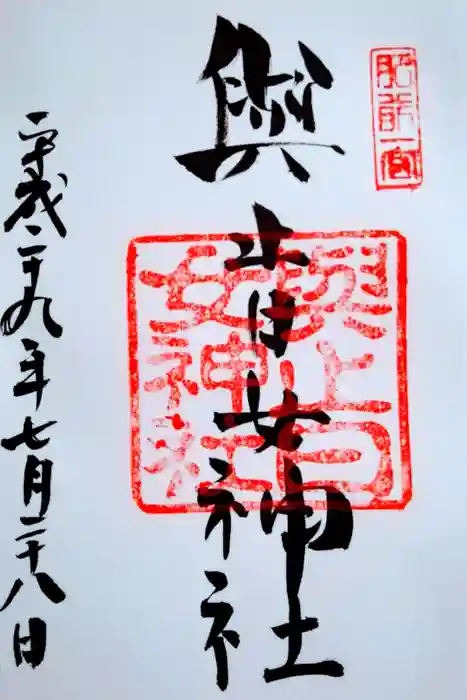 肥前一宮
與止日女神社
與止日女神社
平成二十九年七月二十八日